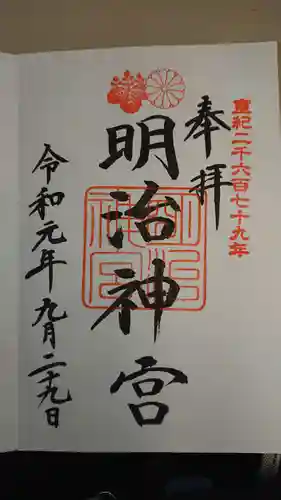 皇紀二千六百七十九年
奉拝
明治神宮
令和元年九月二十九日
明治神宮